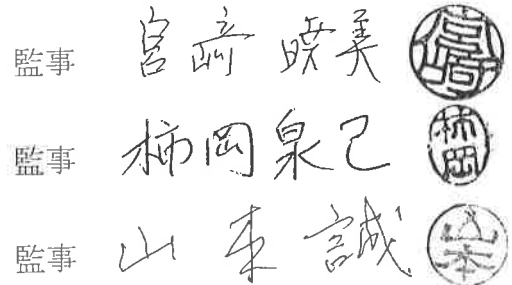 監事 宮﨑 暁美 宮﨑
監事 柿岡泉己 柿岡
監事 山本 誠 山本